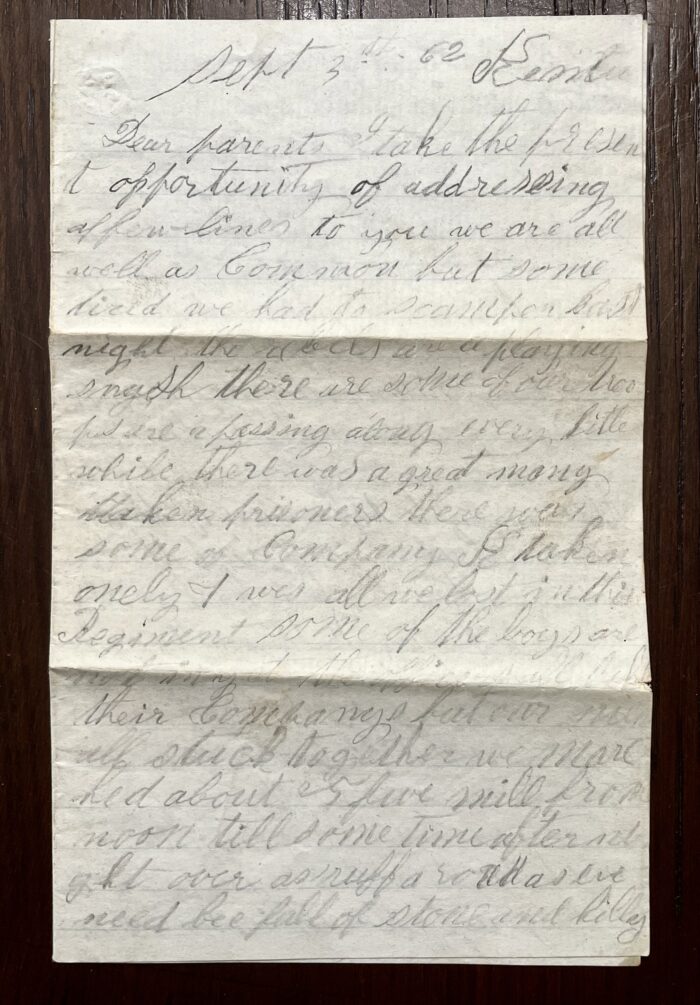 Sept 3 62
Dear parents I take the presen
t opportunity of addressing
a ffew lines to you we are all
well as Common but some
tired we had to scamper last
night the rebels are a playing
smash there are some of our troo
ps are a passing along every little
while there was a great many
taken prisoners there was
some of Company taken
onely 1 was all we lost in this
Regiment some of the boys are
not in yet the
their Companys but our men
all stuck together we marc
hed about 25 five mill from
noon till some time after ni
ght over as ruff a road as ere
need bee full of stone and hilly